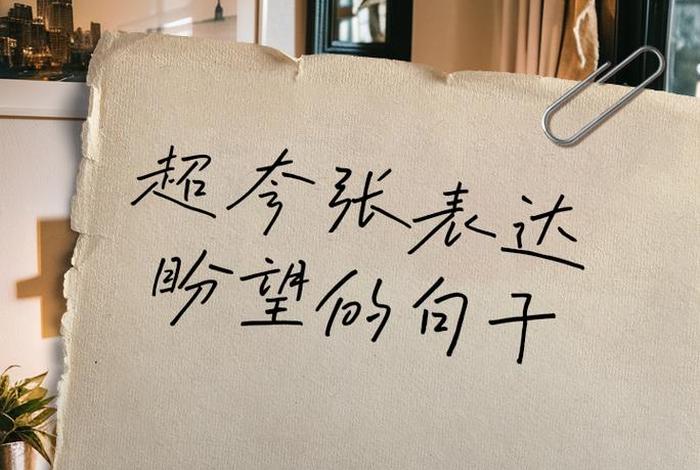 超夸张表达
盼望的句子